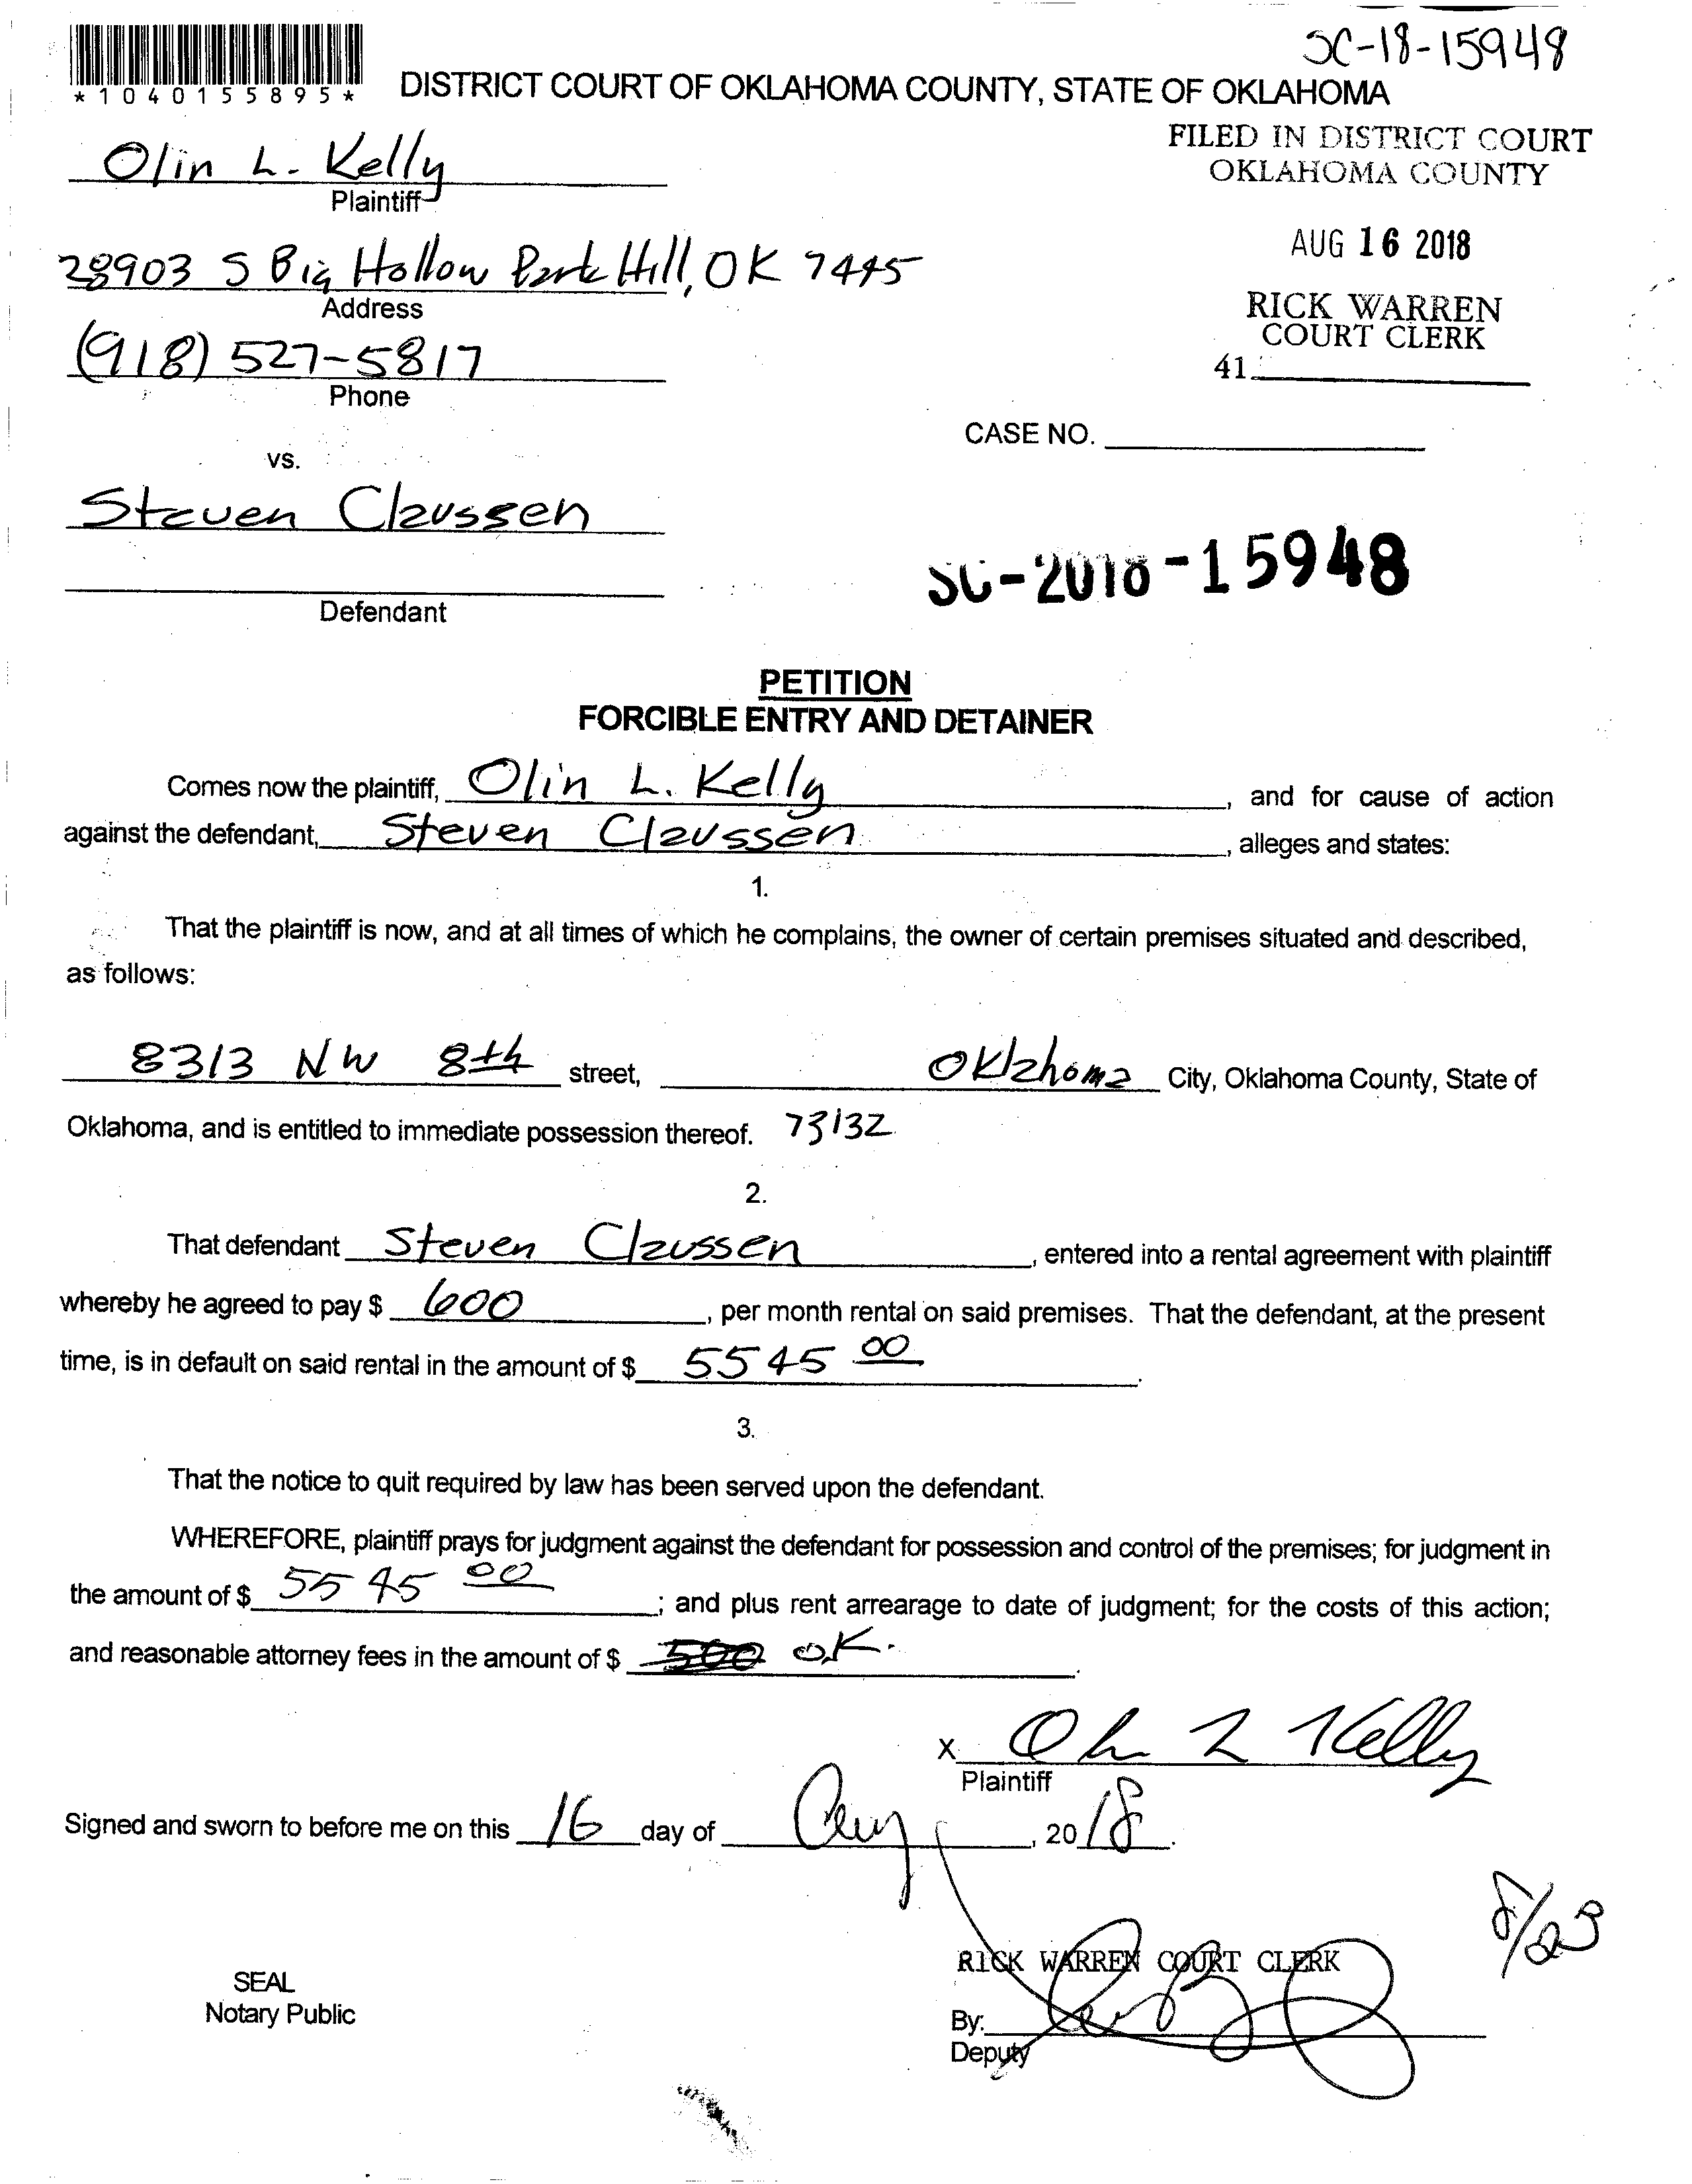 SC-18-15948
*1040155895*
DISTRICT COURT OF OKLAHOMA COUNTY, STATE OF OKLAHOMA
FILED IN DISTRICT COURT
OKLAHOMA COUNTY
Olin L. Kelly
Plaintiff
AUG 16 2018
28903 S Big Hollow Park Hill, OK 7445
Address
RICK WARREN
COURT CLERK
(918) 527-5817
41
Phone
CASE NO.
vs.
Steven Claussen
SC-2018-15948
Defendant
PETITION
FORCIBLE ENTRY AND DETAINER
Comes now the plaintiff, Olin L. Kelly, and for cause of action
against the defendant, Steven Claussen, alleges and states:
1.
That the plaintiff is now, and at all times of which he complains, the owner of certain premises situated and described,
as follows:
8313 NW 8th street, Oklahoma City, Oklahoma County, State of
Oklahoma, and is entitled to immediate possession thereof. 73132
2.
That defendant Steven Claussen, entered into a rental agreement with plaintiff
whereby he agreed to pay $ 600, per month rental on said premises. That the defendant, at the present
time, is in default on said rental in the amount of $ 5545 00.
3.
That the notice to quit required by law has been served upon the defendant.
WHEREFORE, plaintiff prays for judgment against the defendant for possession and control of the premises; for judgment in
the amount of $ 5545 00; and plus rent arrearage to date of judgment; for the costs of this action;
and reasonable attorney fees in the amount of $ 500 OK.
X Olin L Kelly
Plaintiff
Signed and sworn to before me on this 16 day of Aug, 2018.
8/23
RICK WARREN COURT CLERK
SEAL
Notary Public
By:
Deputy